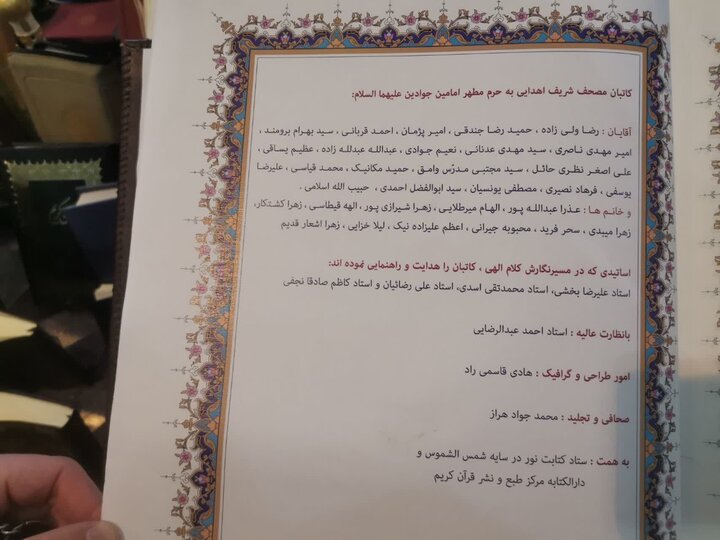 کاتبان مصحف شریف اهدایی به حرم مطهر امامین جوادین علیهما السلام:
آقایان : رضا ولی زاده ، حمید رضا جندقی ، امیر پژمان ، احمد قربانی ، سید بهرام برومند ،
امیر مهدی ناصری ، سید مهدی عدنانی ، نعیم جوادی ، عبدالله عبدلله زاده ، عظیم یساقی ،
علی اصغر نظری حائل ، سید مجتبی مدرّس وامق ، حمید مکانیک ، محمد قیاسی ، علیرضا
یوسفی ، فرهاد نصیری ، مصطفی یونسیان ، سید ابوالفضل احمدی ، حبیب الله اسلامی .
و خانم ها : عذرا عبدالله پور ، الهام میرطلایی ، زهرا شیرازی پور ، الهه قیطاسی ، زهرا کشتکار،
زهرا میبدی ، سحر فرید ، محبوبه جیرانی ، اعظم علیزاده نیک ، لیلا خزایی ، زهرا اشعار قدیم
اساتیدی که در مسیرنگارش کلام الهی ، کاتبان را هدایت و راهنمایی نموده اند:
استاد علیرضا بخشی، استاد محمدتقی اسدی، استاد علی رضائیان و استاد کاظم صادقا نجفی
بانظارت عالیه : استاد احمد عبدالرضایی
امور طراحی و گرافیک : هادی قاسمی راد
صحافی و تجلید : محمد جواد هراز
به همت : ستاد کتابت نور در سایه شمس الشموس و
دارالکتابه مرکز طبع و نشر قرآن کریم